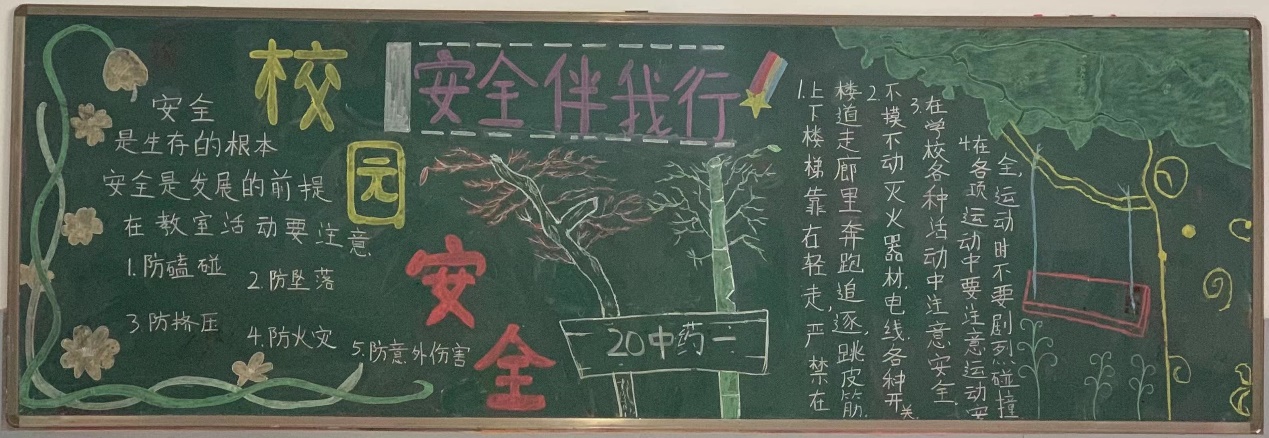 校园安全
安全伴我行
安全
是生存的根本
安全是发展的前提
在教室活动要注意
1.防磕碰
2.防坠落
3防挤压
4.防火灾
5.防意外伤害
20中药一
1.上下楼梯靠右轻走,严禁在
楼道走廊里奔跑追逐,跳皮筋
2.不摸不动灭火器材,电线各种开关
3.在学校各种活动中注意安全
4在各项运动中要注意运动安
全,运动时不要剧烈碰撞